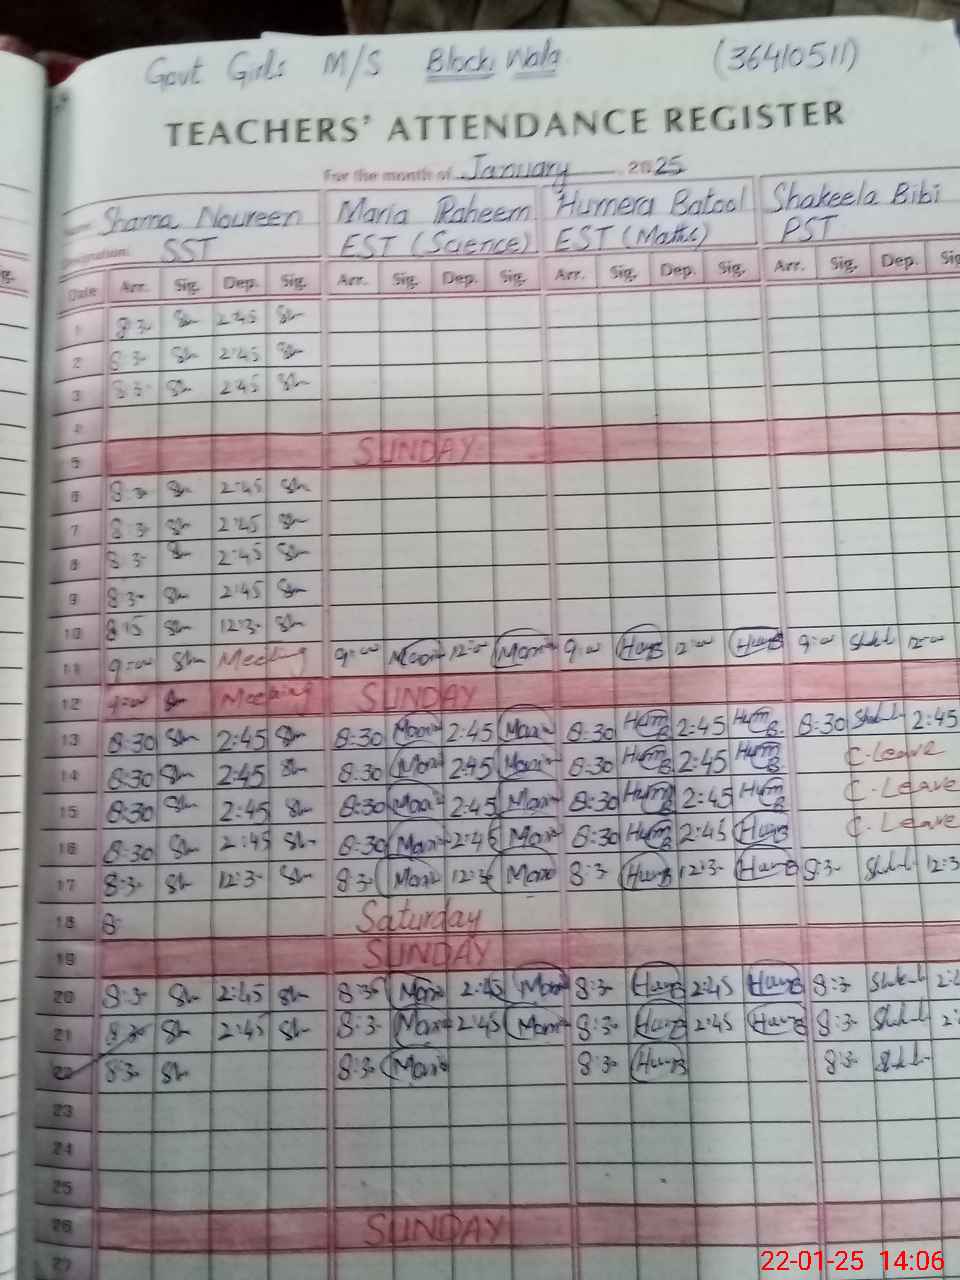 Govt Girls M/S Block Wala (36410511)
TEACHERS' ATTENDANCE REGISTER
For the month of January 2025
Shama Noureen Maria Raheem Humera Batool Shakeela Bibi
SST EST (Science) EST (Maths) PST
Date Arr. Sig. Dep. Sig. Arr. Sig. Dep. Sig. Arr. Sig. Dep. Sig. Arr. Sig. Dep. Sig
1 8:3- Sh 2:45 Sh
2 8:3- Sh 2:45 Sh
3 8:3- Sh 2:45 Sh
4
5 SUNDAY
6 8:3- Sh 2:45 Sh
7 8:3- Sh 2:45 Sh
8 8:3- Sh 2:45 Sh
9 8:3- Sh 2:45 Sh
10 8:15 Sh 12:3- Sh
11 9:00 Sh Meeting 9:00 Maria 12:00 Maria 9:00 HumB 12:00 HumB 9:00 Shakl 12:00
12 9:00 Sh Meeting SUNDAY
13 8:30 Sh 2:45 Sh 8:30 Maria 2:45 Maria 8:30 HumB 2:45 HumB 8:30 Shakl 2:45
14 8:30 Sh 2:45 Sh 8:30 Maria 2:45 Maria 8:30 HumB 2:45 HumB C.Leave
15 8:30 Sh 2:45 Sh 8:30 Maria 2:45 Maria 8:30 HumB 2:45 HumB C.Leave
16 8:30 Sh 2:45 Sh 8:30 Maria 2:45 Maria 8:30 HumB 2:45 HumB C.Leave
17 8:3- Sh 12:3- Sh 8:3- Maria 12:3- Maria 8:3- HumB 12:3- HumB 8:3- Shakl 12:3
18 8: Saturday
19 SUNDAY
20 8:3- Sh 2:45 Sh 8:3- Maria 2:45 Maria 8:3- HumB 2:45 HumB 8:3- Shakl 2:
21 8:30 Sh 2:45 Sh 8:3- Maria 2:45 Maria 8:3- HumB 2:45 HumB 8:3- Shakl 2:
22 8:3- Sh 8:3- Maria 8:3- HumB 8:3- Shakl
23
24
25
26 SUNDAY
27
22-01-25 14:06